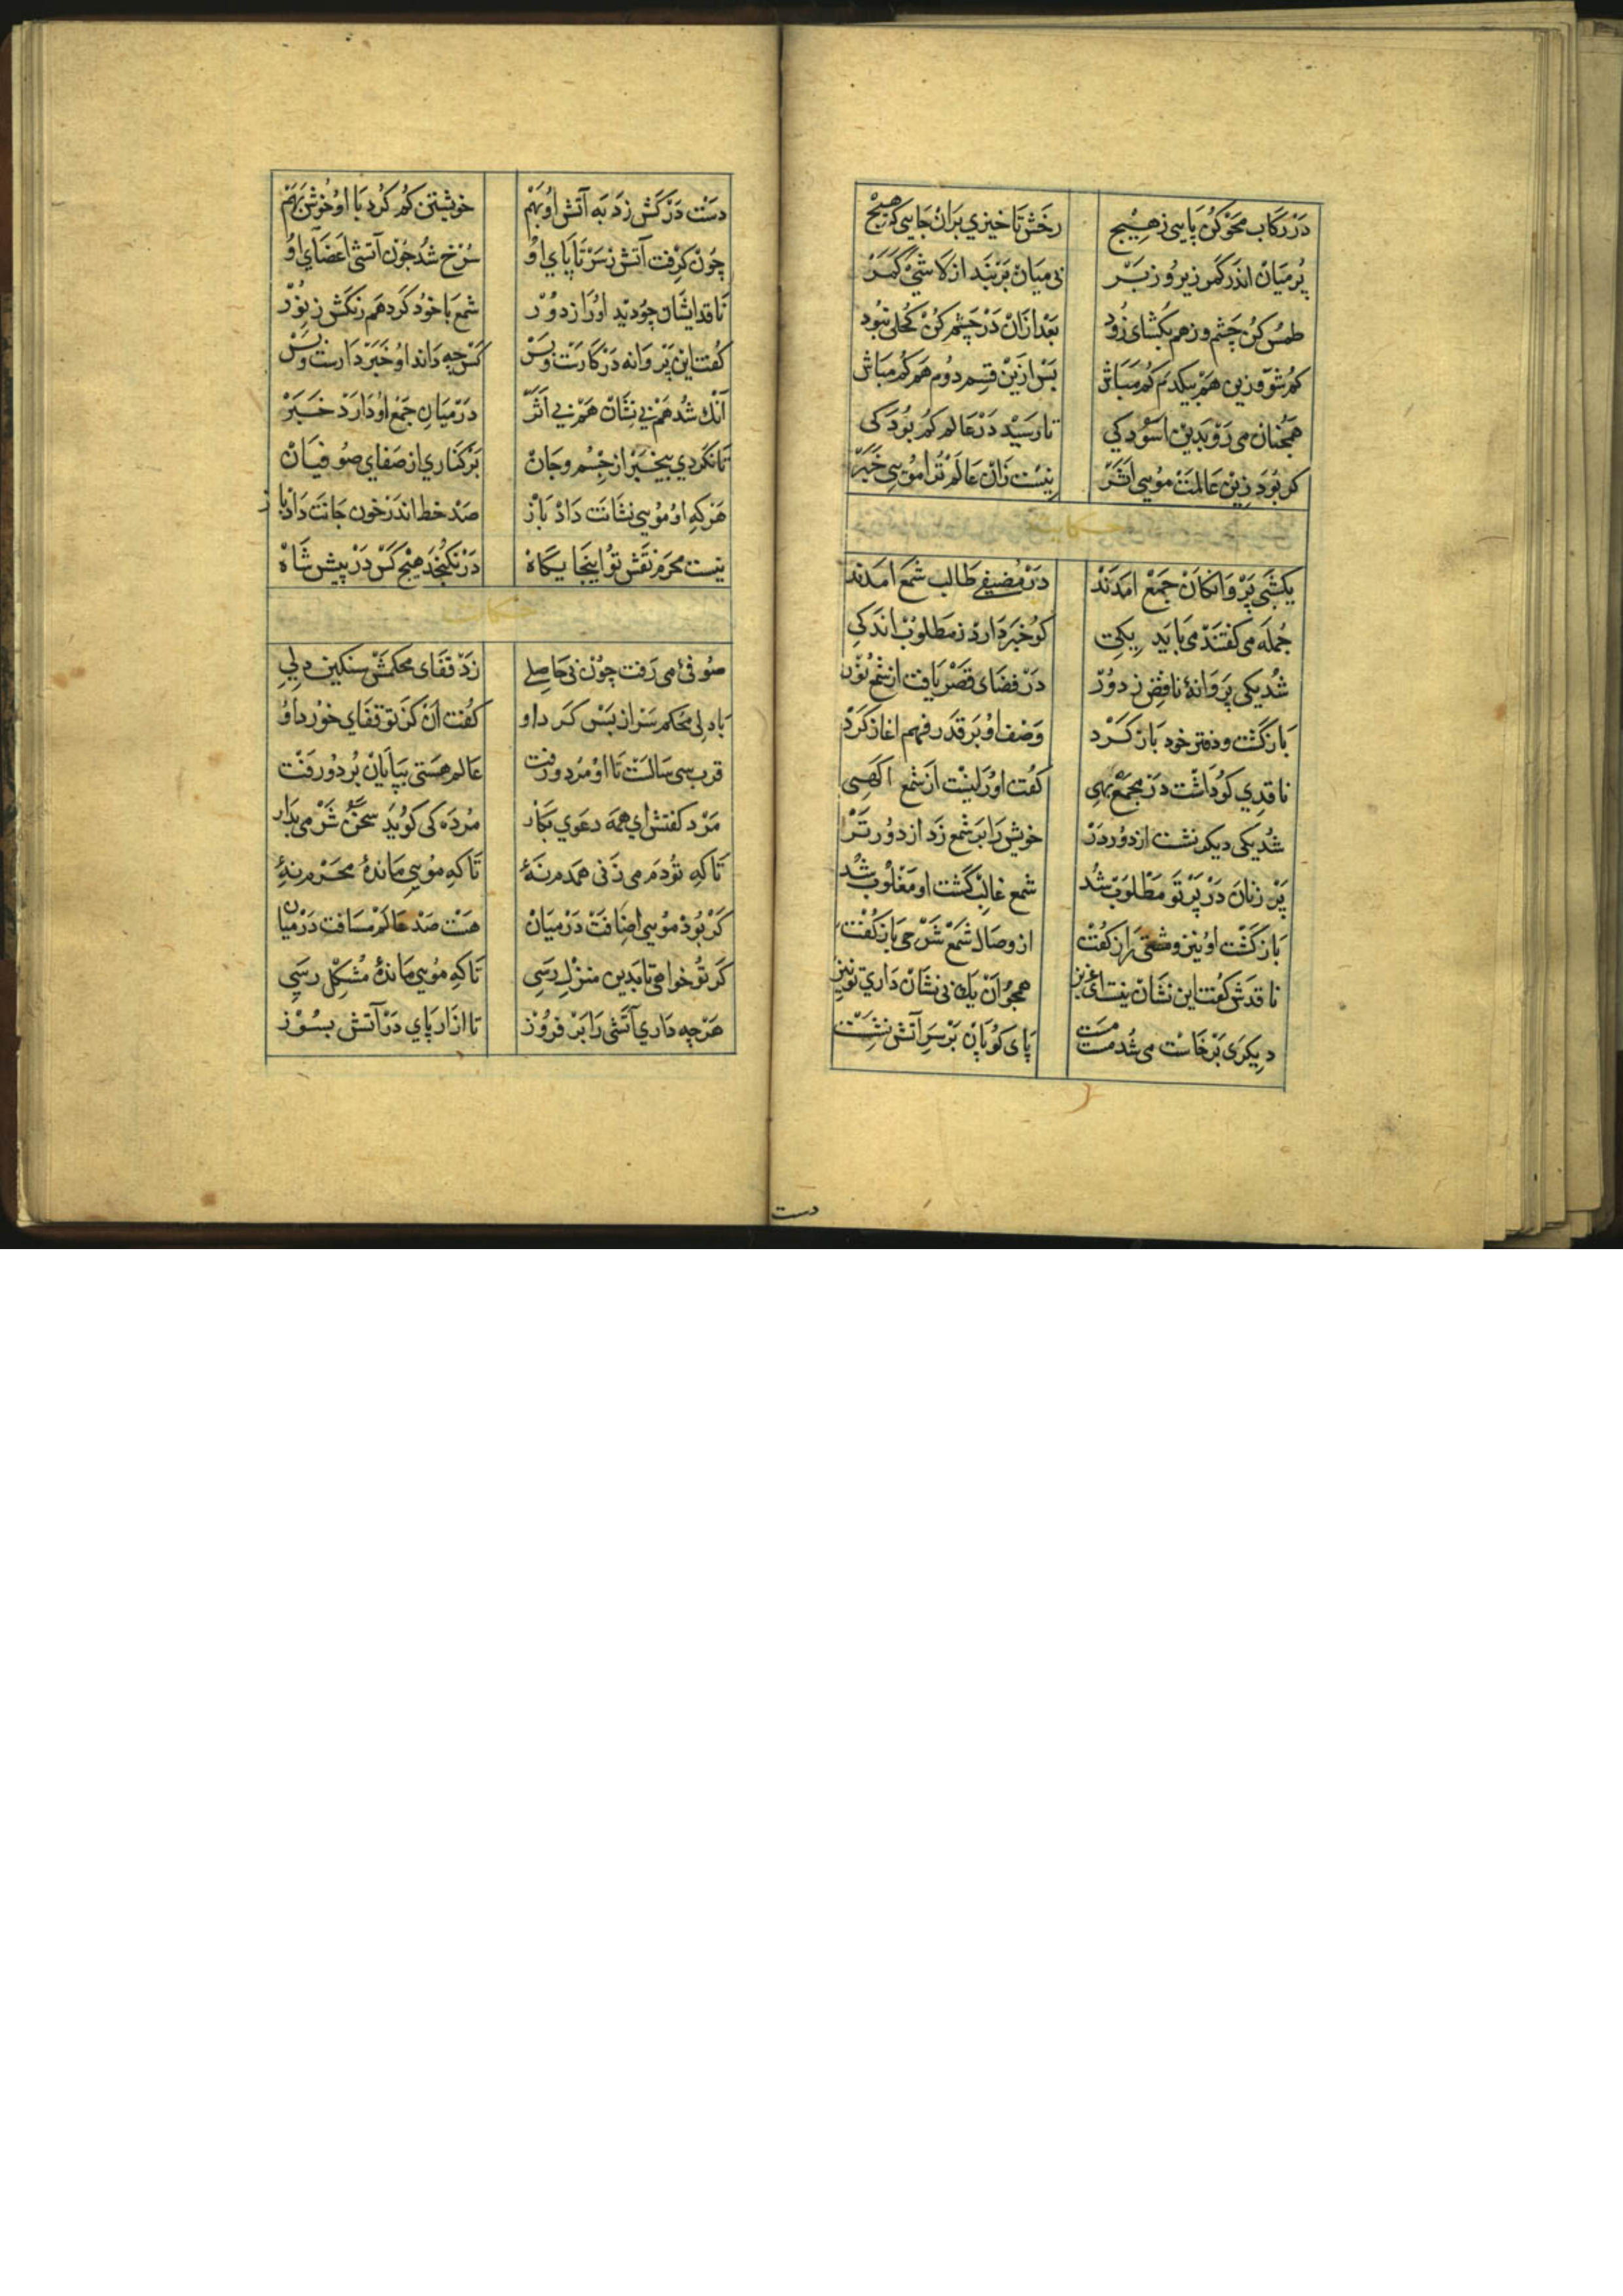 در رکاب محو کن پایی ز هیچ رخش تا خیزی بران جایی که هیچ
بر میان اندر کمر زیر و زبر بی میان بربند از لاشیٔ کمر
طمس کن چشم و زهم بکشای زود بعد ازان در چشم کن کحلی نبود
کم شو وزین هم بیکدم کم مباش بس ازین قسم دوم هم کم مباش
همچنان می رو بدین اسودکی تا رسید در عالم کم بودکی
کر بود زین عالمت مویی اثر نیست زان عالم ترا مویی خبر
حکایت
یکشبی پروانکان جمع امدند در مضیفی طالب شمع امدند
جمله می کفتند می باید یکی کو خبر دارد ز مطلوب اندکی
شد یکی پروانهٔ ناقص ز دور در فضای قصر یافت از شمع نور
باز کشت و دفتر خود باز کرد وصف او بر قدر فهم اغاز کرد
ناقدی کو داشت در مجمع بهی کفت او را نیست از شمع اکهی
شد یکی دیکر نشت از دور در خویش را بر شمع زد از دور تر
پر زنان در پرتو مطلوب شد شمع غالب کشت او مغلوب شد
باز کشت او نیز و مشتی راز کفت از وصال شمع شرحی باز کفت
ناقدش کفت این نشان نیست ای عزیز همچو ان یک نی نشان داری تو نیز
دیکری برخاست می شد مست مست پای کوبان بر سر آتش نشست
دست
دست در کش زد به آتش او بهم خویشتن کم کرد با او خوش بهم
چون کرفت آتش ز سر تا پای او سرخ شد چون آتشی اعضای او
ناقد ایشان چو دید او را ز دور شمع با خود کرد هم رنکش ز نور
کفت این پروانه در کارت و بس کس چه داند او خبر دارت و بس
آنک شد هم بی نشان هم بی اثر در میان جمع او دارد خبر
تا نکردی بیخبر از جسم و جان بر کناری از صفای صوفیان
هرکه او مویی نشانت داد باز صد خط اندر خون جانت داد باز
نیست محرم نقش تو اینجایکاه در نکنجد هیچ کس در پیش شاه
حکایت
صوفیٔ می رفت چون بی حاصلی زد قفای محکمش سنکین دلی
با دلی محکم سر از بس کرد او کفت ان کز تو قفای خورد او
قرب سی سالست تا او مرد و رفت عالم هستی بپایان برد و رفت
مرد کفتش ای همه دعوی نه کار مرده کی کوید سخن شرمی بدار
تا که تو دم می زنی همدم نهٔ تا که مویی ماندهٔ محرم نهٔ
کر بود مویی اضافت در میان هست صد عالم مسافت در میان
کر تو خواهی تا بدین منزل رسی تا که مویی ماندهٔ مشکل رسی
هرچه داری آتشی را بر فروز تا ازار پای در آتش بسوز